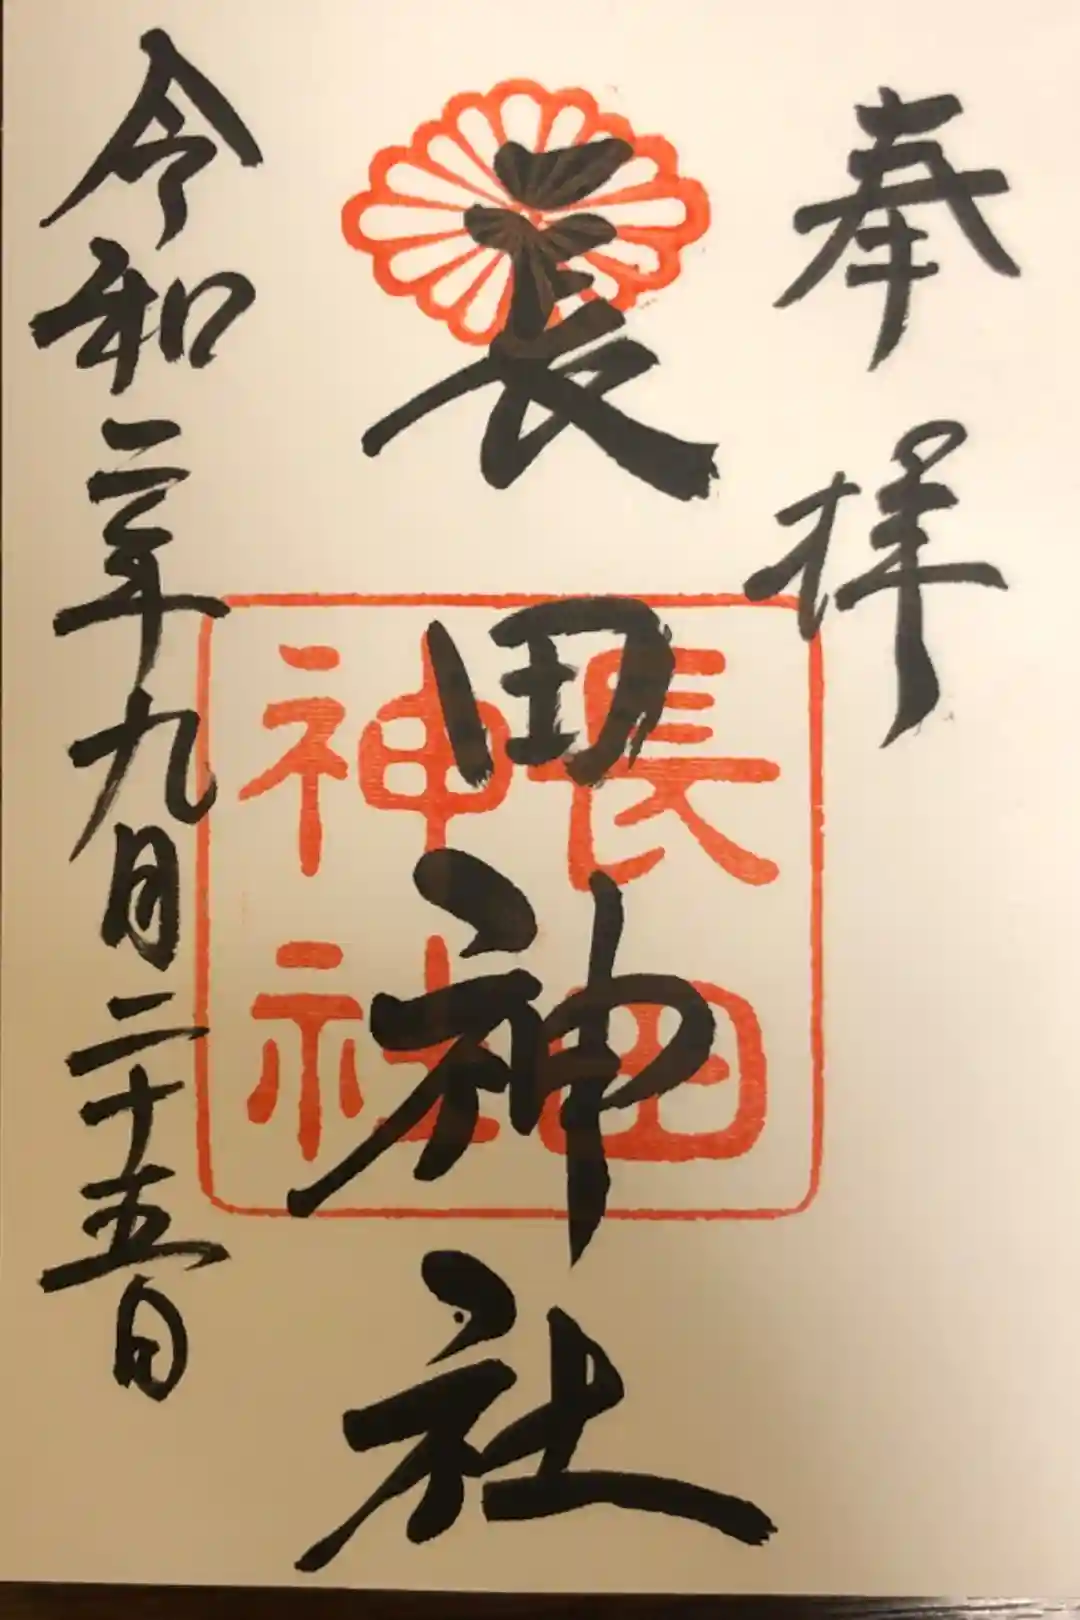 奉拝
長田神社
長田
神社
令和二年九月二十五日